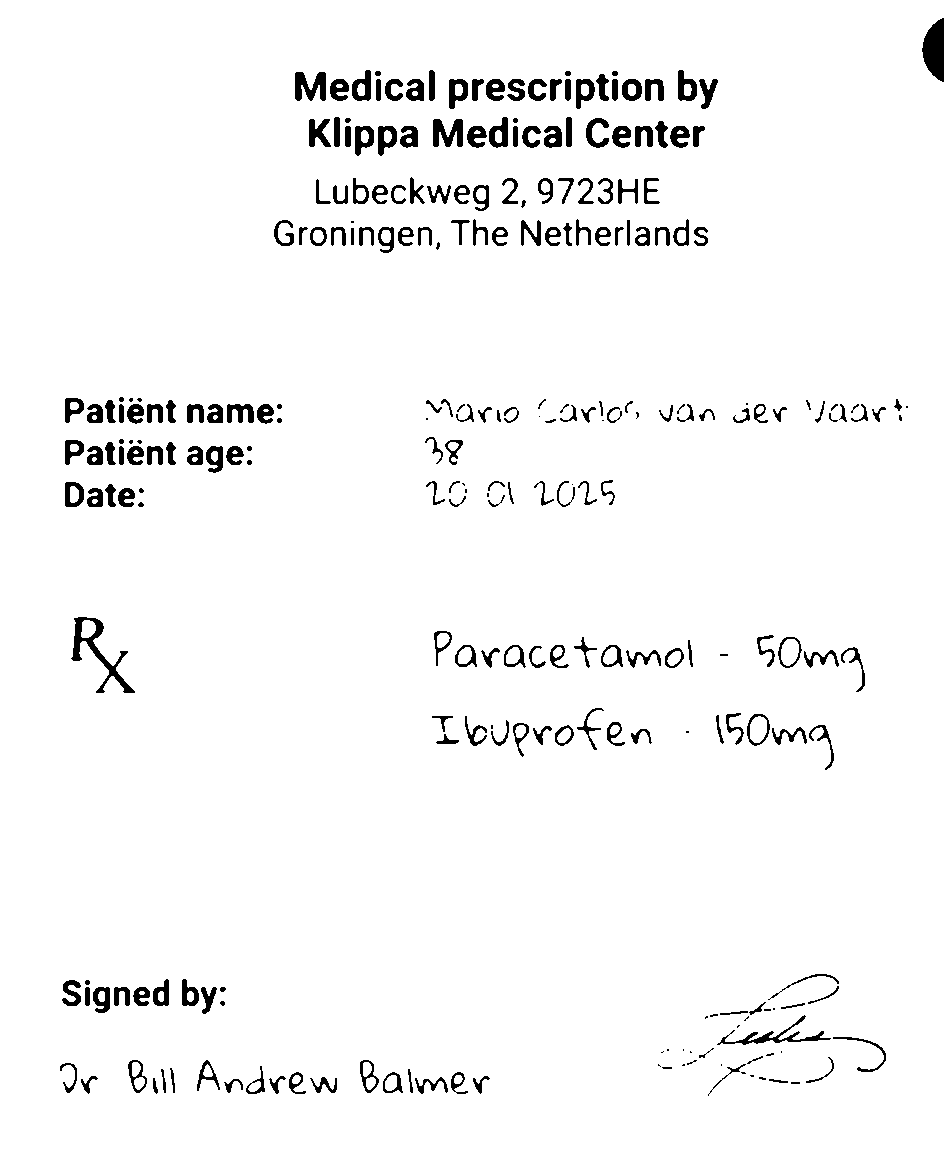 Medical prescription by
Klippa Medical Center
Lubeckweg 2, 9723HE
Groningen, The Netherlands
Patiënt name: Mario Carlos van der Vaart
Patiënt age: 38
Date: 20 01 2025
Rx Paracetamol - 50mg
Ibuprofen - 150mg
Signed by:
Dr Bill Andrew Balmer